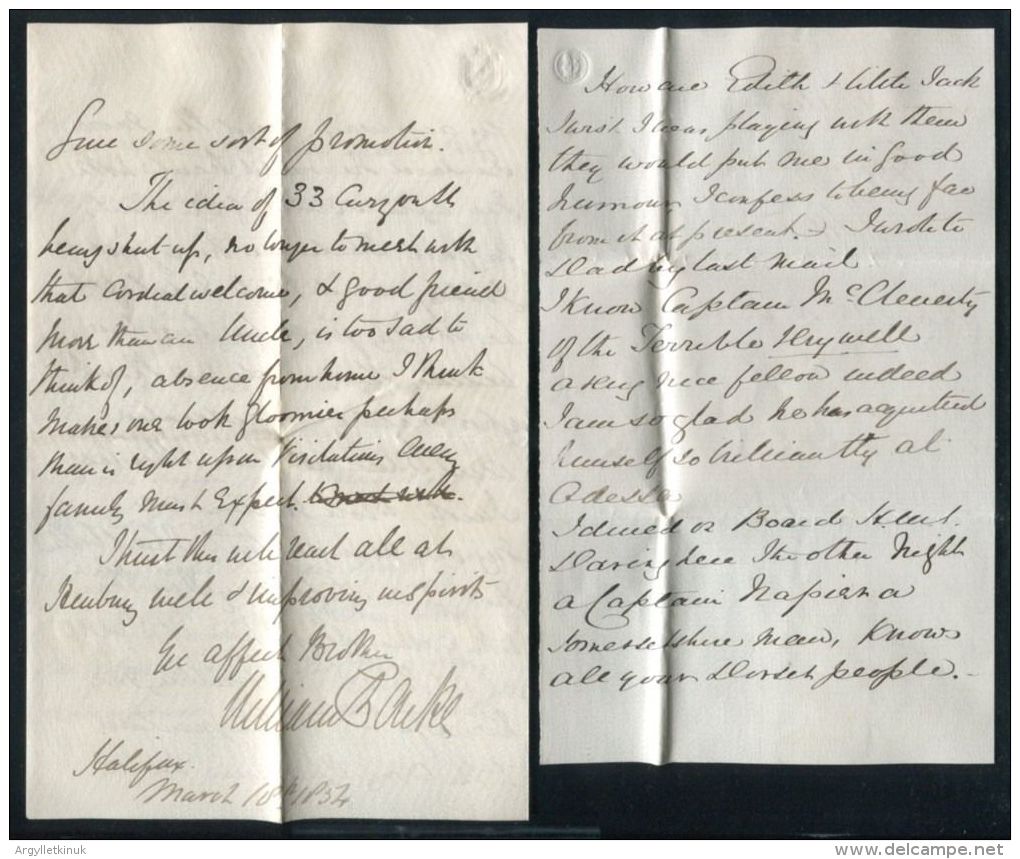 Give some sort of promotion.
The idea of 33 Curzon St
being shut up, no longer to meet with
that cordial welcome, & good friend
more than an Uncle, is too sad to
think of, absence from home I think
makes one look gloomier perhaps
than is right upon Visitations every
family must expect.
I trust this will reach all at
Henbury well & improving in spirits
affect Brother
William
Halifax.
March 18th 185
How are Edith & little Jack
I wish I was playing with them
they would put me in good
humour I confess to being far
from it at present. I wrote to
Dad by last mail
I know Captain McCleverty
of the Terrible very well
a very nice fellow indeed
I am so glad he has acquitted
himself so brilliantly at
Odessa
I dined on Board
Daring here the other Night
a Captain Napier a
Somersetshire Man, Knows
all your Dorset people.
Argylletkinuk
www.delcampe.net